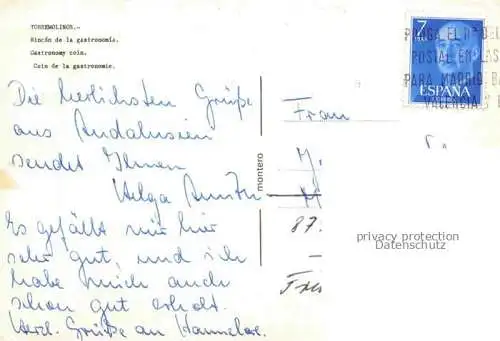 TORREMOLINOS.-
Rincón de la gastronomia.
Gastronomy coin.
Coin de la gastronomie.
Die herlichsten Grüße
aus Andalusien
sendet Ihnen
Helga
Es gefällt mir hier
sehr gut, und ich
habe mich auch
schon gut erholt.
Herzl. Grüße an Hannelore.
montero
7
PTAS
ESPAÑA
PONGA EL Nº DEL
POSTAL EN LAS
PARA MADRID BA
VALENCIA
Frau
M.
M
87.
privacy protection
Datenschutz